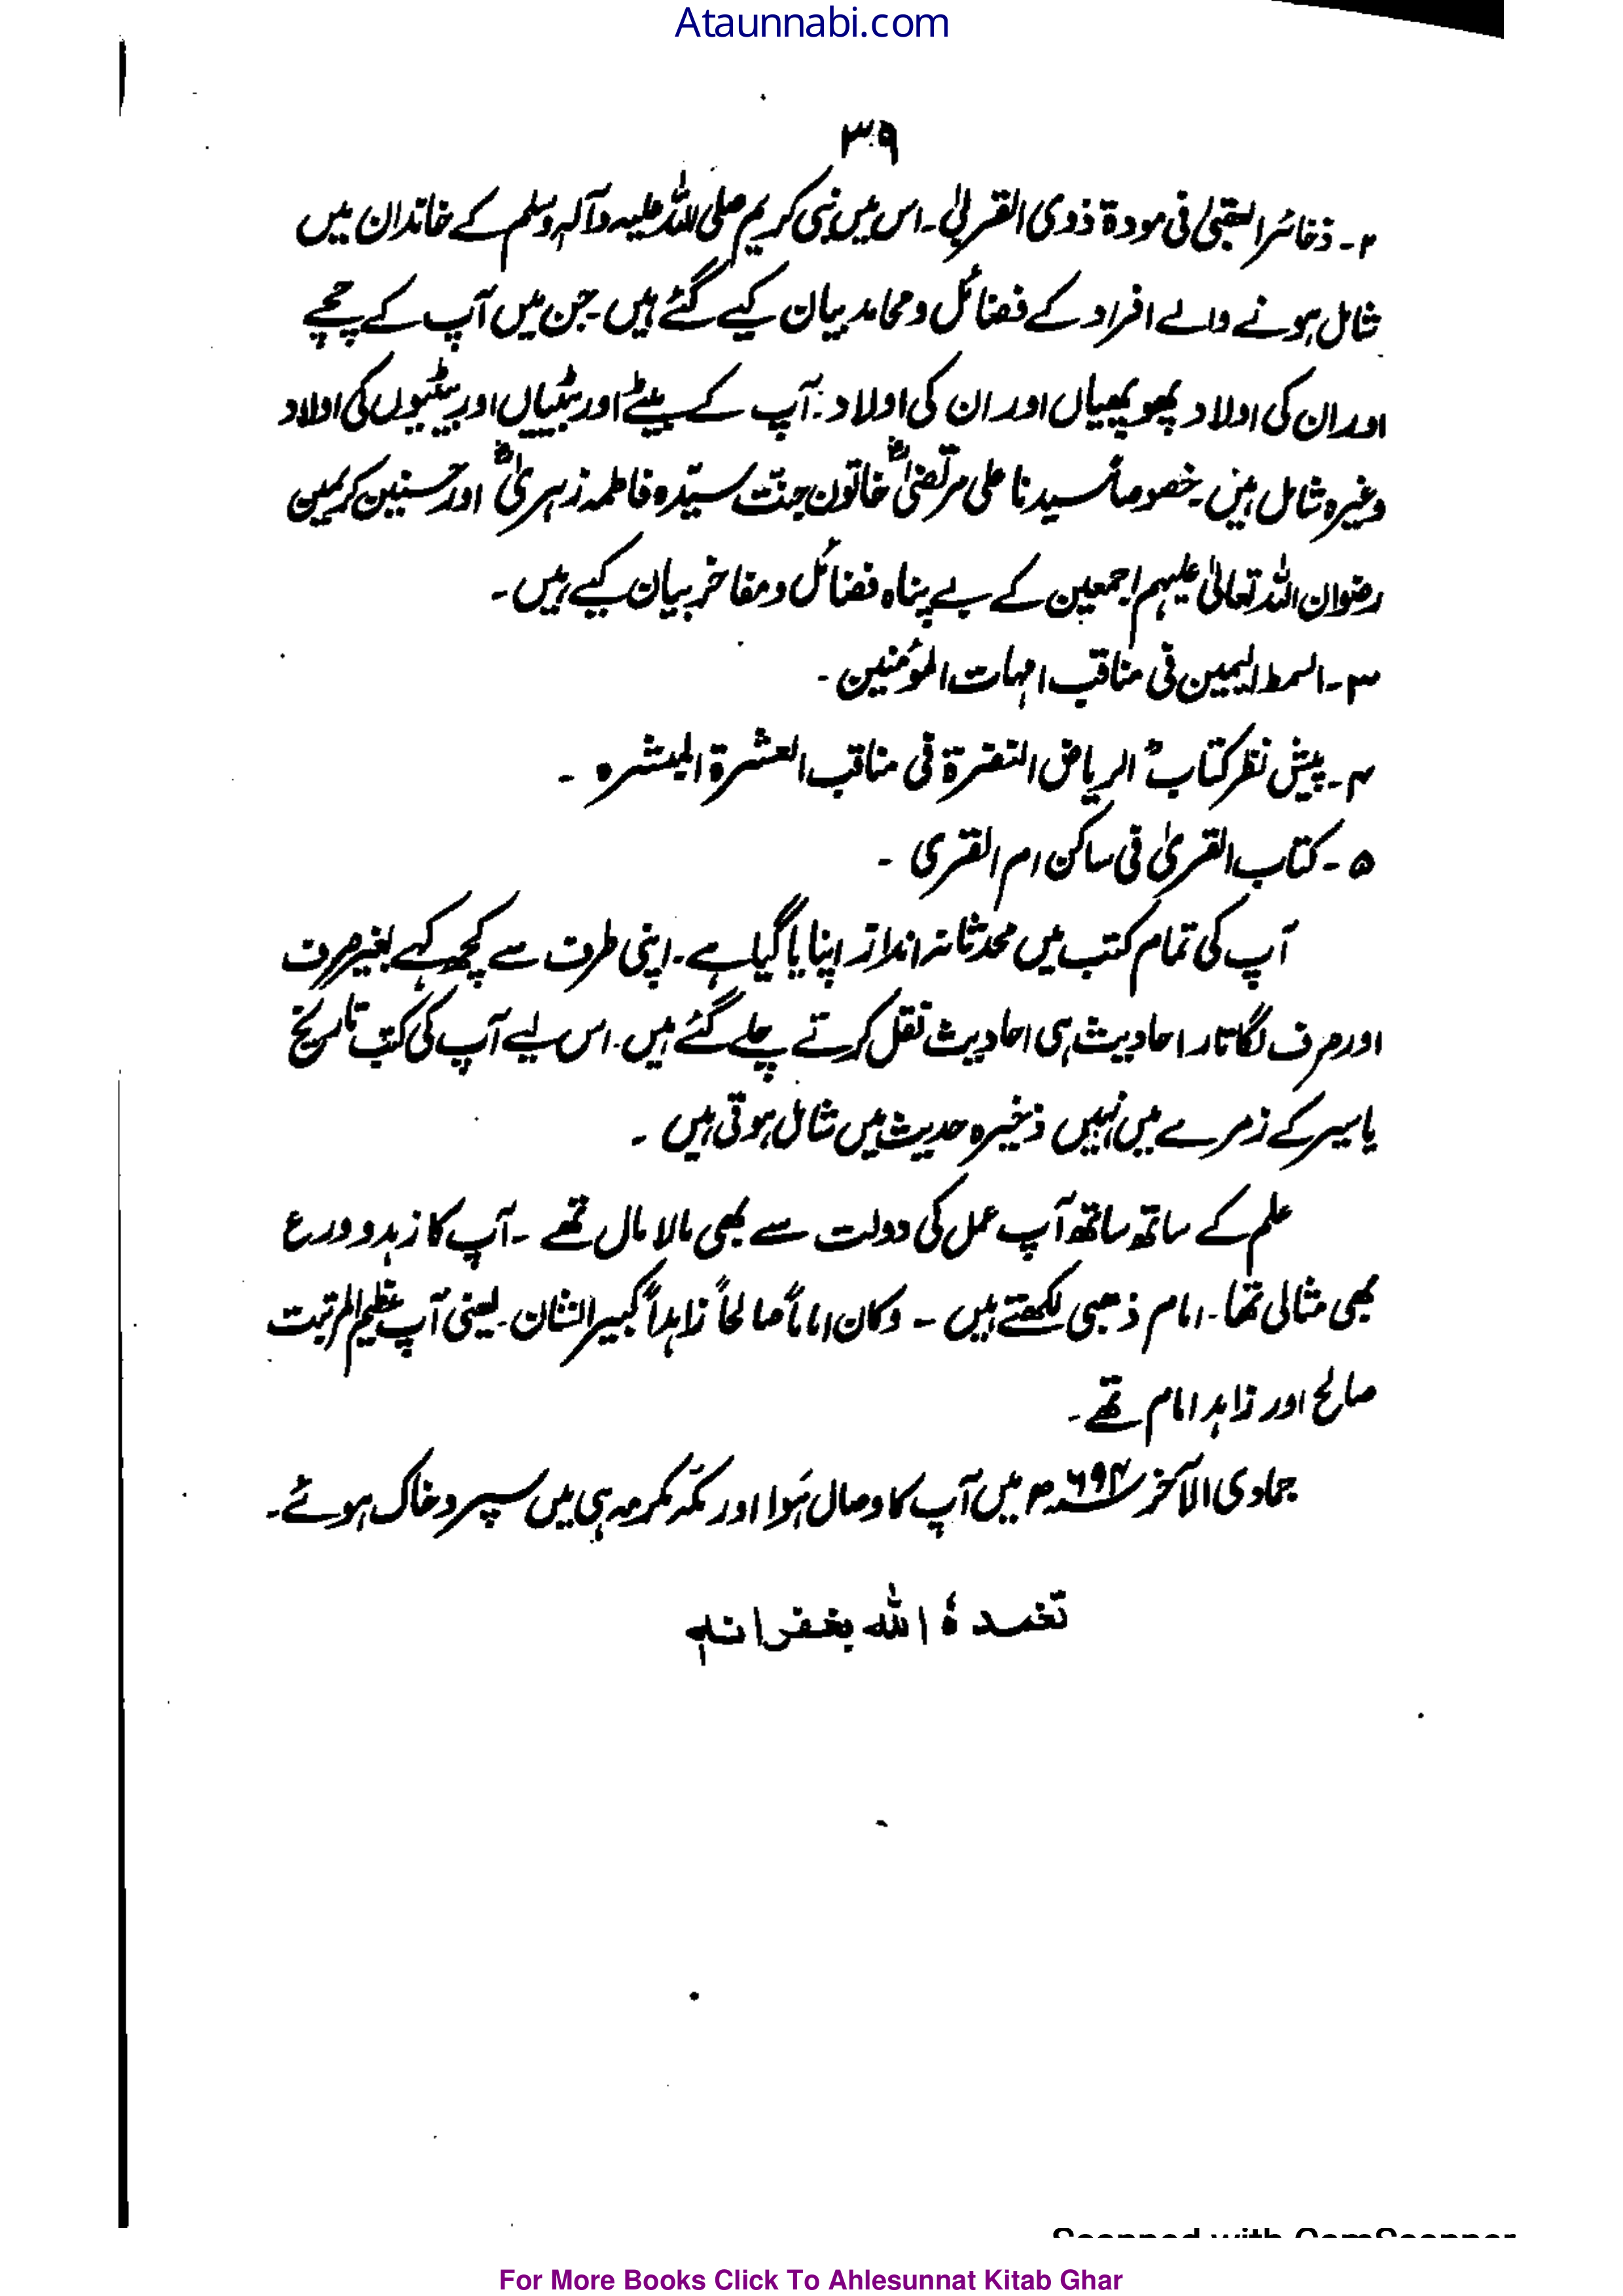 Ataunnabi.com
۳۹
۲۔ ذخائر العقبیٰ فی مودۃ ذوی القربیٰ۔ اس میں نبی کریم صلی اللہ علیہ وآلہ وسلم کے خاندان میں
شامل ہونے والے افراد کے فضائل ومحامد بیان کیے گئے ہیں۔ جن میں آپ کے چچے
اور ان کی اولاد پھوپھیاں اور ان کی اولاد۔ آپ کے بیٹے اور بیٹیاں اور بیٹیوں کی اولاد
وغیرہ شامل ہیں۔ خصوصاً سیدنا علی مرتضیٰؓ خاتون جنت سیّدہ فاطمہ زہریٰؓ اور حسنین کریمین
رضوان اللہ تعالیٰ علیہم اجمعین کے بے پناہ فضائل ومفاخر بیان کیے ہیں۔
۳۔ السمط الیمین فی مناقب امہات المؤمنین۔
۴۔ پیش نظر کتاب "الریاض النضرۃ فی مناقب العشرۃ المبشرہ۔
۵۔ کتاب القریٰ فی ساکن ام القری۔
آپ کی تمام کتب میں محدثانہ انداز اپنایا گیا ہے۔ اپنی طرف سے کچھ کہے بغیر صرف
اور صرف لگاتار احادیث ہی احادیث نقل کرتے چلے گئے ہیں۔ اس لیے آپ کی کتب تاریخ
یا سیر کے زمرے میں نہیں ذخیرہ حدیث میں شامل ہوتی ہیں۔
علم کے ساتھ ساتھ آپ عمل کی دولت سے بھی مالا مال تھے۔ آپ کا زہد و ورع
بھی مثالی تھا۔ امام ذھبی لکھتے ہیں۔ وکان اماماً صالحاً زاہداً کبیر الشان۔ یعنی آپ عظیم المرتبت
صالح اور زاہد امام تھے۔
جمادی الآخر سنہ ۶۹۴ھ میں آپ کا وصال ہُوا اور مکّہ مکرمہ ہی میں سپرد خاک ہوئے۔
تغمدہُ اللہ بغفرانہٖ
Scanned with CamScanner
For More Books Click To Ahlesunnat Kitab Ghar